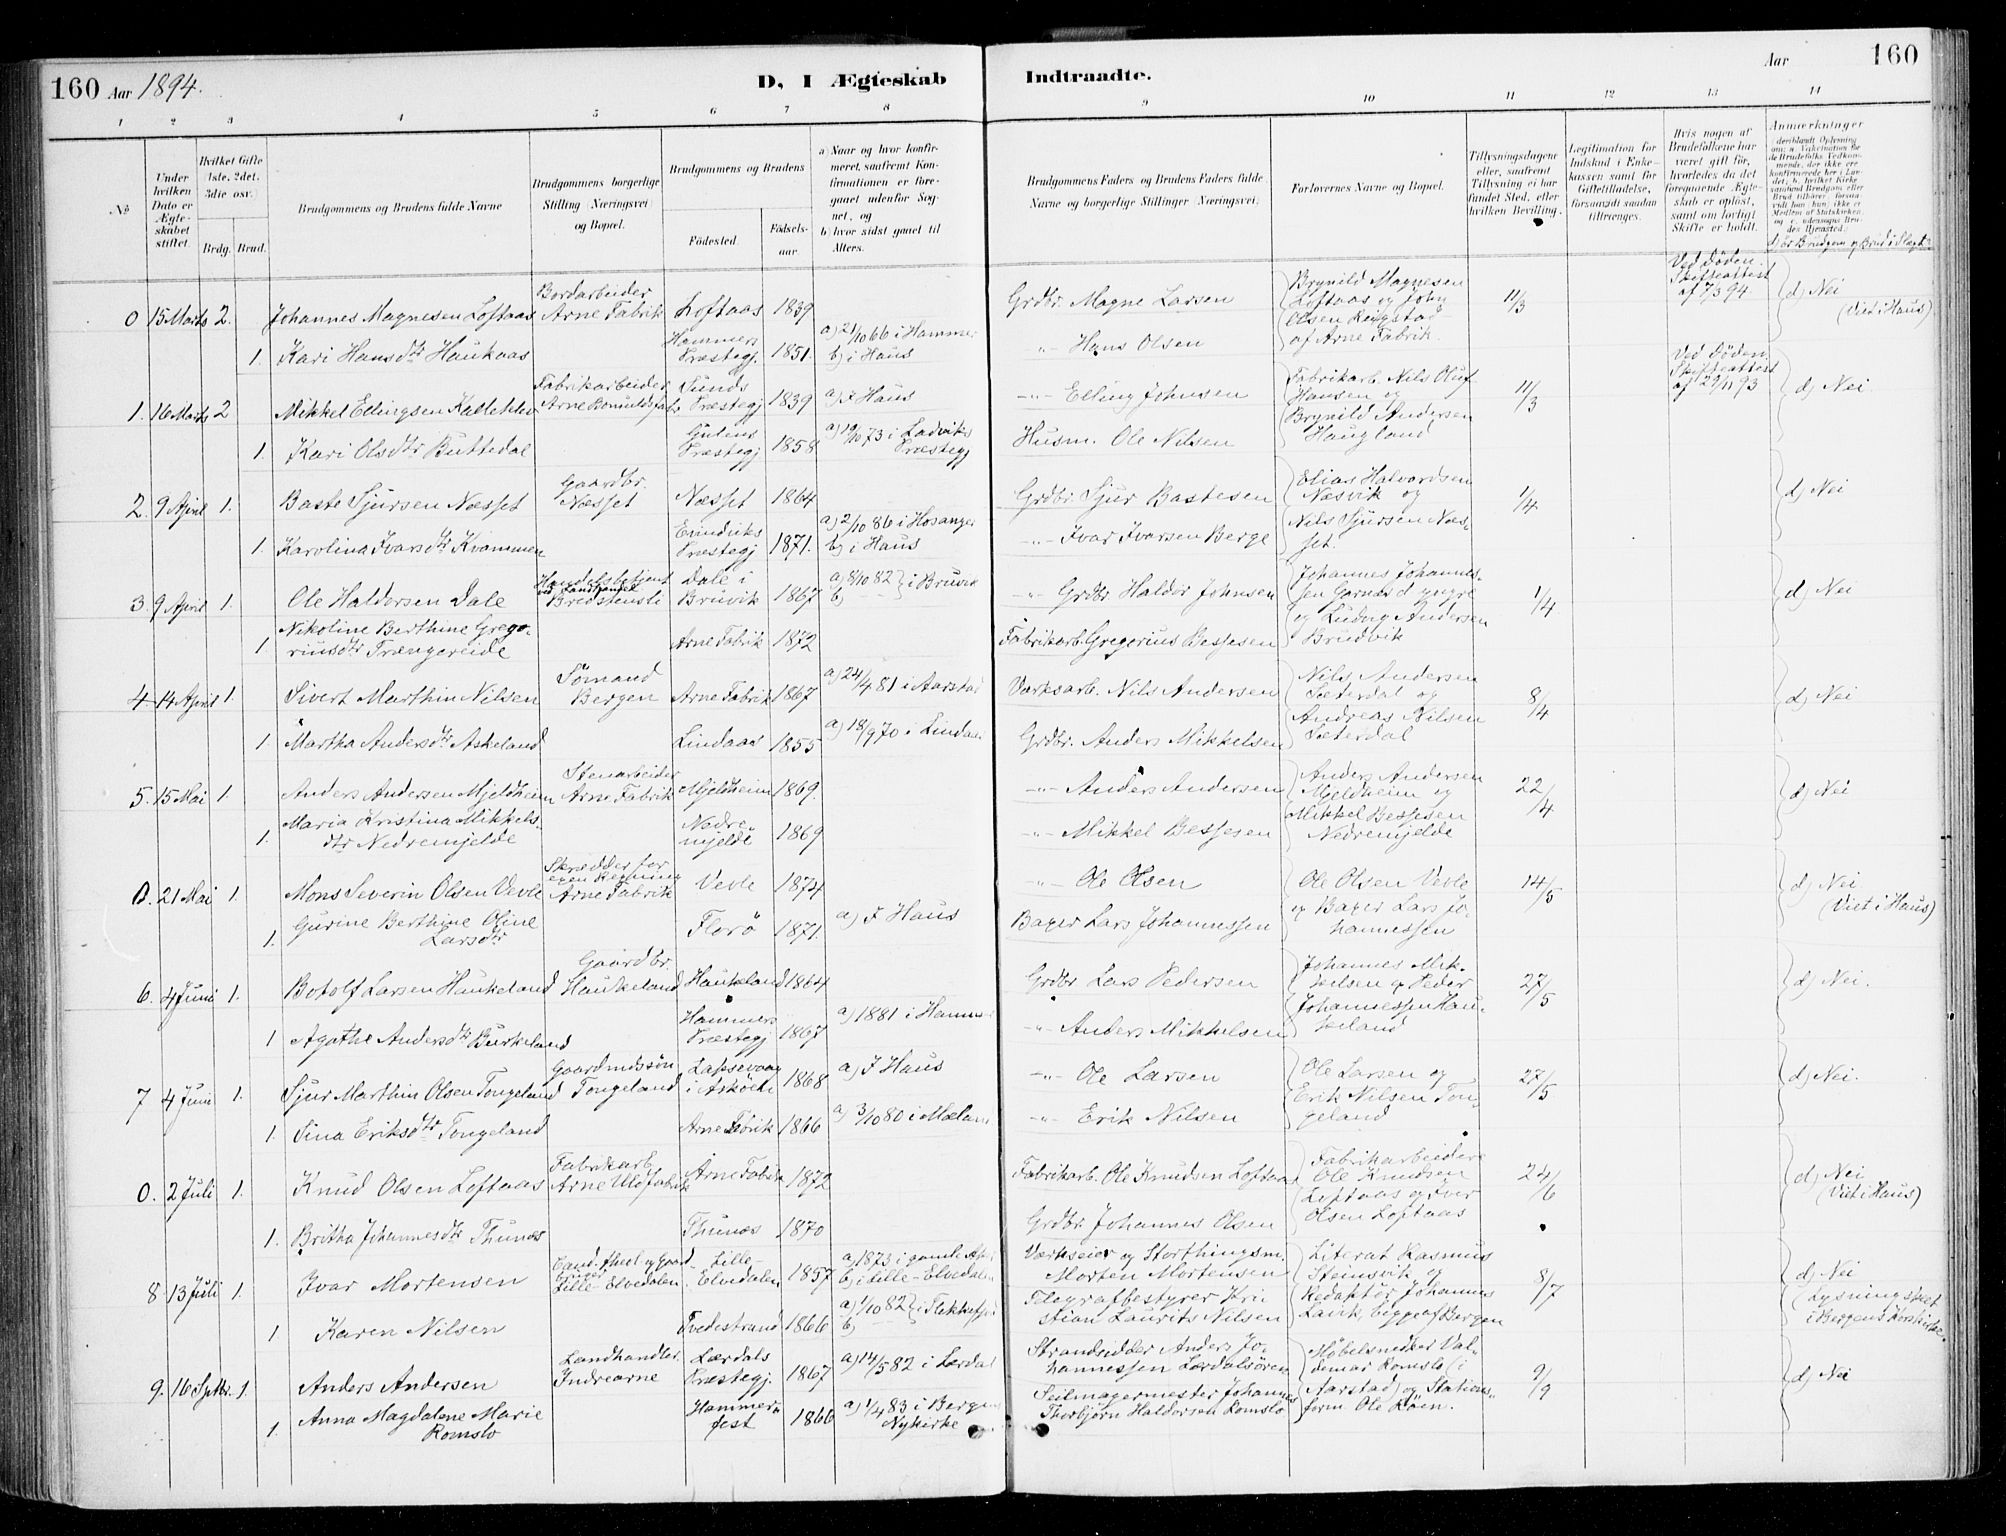 160 Aar 1894.
D, I Ægteskab
Indtraadte.
Aar 160
1 2 3 4 5 6 7 8 9 10 11 12 13 14
No
Under hvilken Dato er Ægteskabet stiftet.
Hvilket Gifte (1ste, 2det, 3die osv.)
Brdg. Brud.
Brudgommens og Brudens fulde Navne
Brudgommens borgerlige Stilling Næringsvei og Bopæl.
Brudgommens og Brudens
Födested. Födselsaar.
a) Naar og hvor konfirmeret, saafremt Konfirmationen er foregaaet udenfor Sognet, og
b) hvor sidst gaaet til Alters.
Brudgommens Faders og Brudens Faders fulde Navne og borgerlige Stillinger Næringsvei.
Forlovernes Navne og Bopæl.
Tillysningsdagene eller, saafremt Tillysning ei har fundet Sted, efter hvilken Bevilling.
Legitimation for Indskud i Enkekassen samt for Giftetilladelse, forsaavidt saadan tiltrænges.
Hvis nogen af Brudefolkene har været gift før, hvorledes da det foregaaende Ægteskab er opløst, samt om lovligt Skifte er holdt.
Anmærkninger
d) ér Brudgom og Brud i Slægt?
0 15 Marts 2. Johannes Magnesen Loftaas Bordarbeider Arne Fabrik Loftaas 1839 Grdbr. Magne Larsen Brynild Magnesen Loftaas og John Olsen Ringstad af Arne Fabrik. 11/3 Ved Döden. Skifteattest af 7/3 94. d) Nei (Viet i Haus)
1. Kari Hansdtr Haukaas Hammers Præstegj. 1851. a) 21/10 66 i Hammer b) i Haus -"- Hans Olsen
1. 16 Marts 2 Mikkel Ellingsen Kalleklev Fabrikarbeider Sunds Præstegj 1839 a) I Haus -"- Elling Johnsen Fabrikarb. Nils Oluf Hansen og Brynild Andersen Haugland 11/3 Ved Döden. Skifteattest af 29/11 93 d) Nei
1. Kari Olsdtr Buttedal Gulens Præstegj 1858 a) 19/10 73 i Ladviks Præstegj Husm. Ole Nilsen
2. 9 April 1. Baste Sjursen Næsset Gaardbr. Næsset Næsset 1864 Grdbr. Sjur Bastesen Elias Halvardsen Næsvik og Nils Sjursen Næsset. 1/4 d) Nei
1. Karolina Ivarsdtr Kvammen Evindviks Præstegj 1871. a) 2/10 86 i Hosanger b) i Haus -"- Ivar Ivarsen Berge
3. 9 April 1. Ole Haldorsen Dale Handelsbetjent ved Landhandel Bredstensli Dale i Bruvik 1867 a) 8/10 82 b) } i Bruvik -"- Grdbr. Haldor Johnsen Johannes Johannessen Garnæs d yngre og Ludvig Andersen Brudvik 1/4 d) Nei
1. Nikoline Berthine Gregoriusdtr Trængereide Arne Fabrik 1872 Fabrikarb. Gregorius Bessesen
4 14 April 1. Sivert Marthin Nilsen Sömand Bergen Arne Fabrik 1867 a) 24/4 81 i Aarstad Værksarb. Nils Andersen Nils Andersen Sæterdal og Andreas Nilsen Sæterdal 8/4 d) Nei
1. Martha Andersdtr Askeland Lindaas 1855 a) 18/9 70 i Lindaas Grdbr. Anders Mikkelsen
5. 15 Mai 1. Anders Andersen Mjeldheim Stenarbeider Arne Fabrik Mjeldheim 1869. -"- Anders Andersen Anders Andersen Mjeldheim og Mikkel Bessesen Nedremjelde 22/4 d) Nei
1. Maria Kristina Mikkelsdtr Nedremjelde Nedremjelde 1869 -"- Mikkel Bessesen
0. 21 Mai 1. Mons Severin Olsen Vevle Skrædder for egen Regning Arne Fabrik Vevle 1874 -"- Ole Olsen Ole Olsen Vevle og Bager Lars Johannessen 14/5 d) Nei. (Viet i Haus)
1. Gurine Berthine Oline Larsdtr Florö 1871. a) I Haus Bager Lars Johannessen
6. 4 Juni 1. Botolf Larsen Haukeland Gaardbr. Haukeland Haukeland 1864 Grdbr Lars Pedersen Johannes Mikkelsen og Peder Johannessen Haukeland 27/5 d) Nei.
1 Agathe Andersdtr Burkeland Hammers Præstegj 1867 a) 1881 i Hammer -"- Anders Mikkelsen
7 4 Juni 1. Sjur Marthin Olsen Tongeland Gaardmdssön Tongeland i Asköen 1868 a) I Haus -"- Ole Larsen Ole Larsen og Erik Nilsen Tongeland 27/5 d) Nei.
1. Sina Eriksdtr Tongeland Arne Fabrik 1866 a) 3/10 80 i Mæland -"- Erik Nilsen
0. 2 Juli 1. Knud Olsen Loftaas Fabrikarb. Arne Uldfabrik Arne Fabrik 1872 Fabrikarb. Ole Knudsen Loftaas Fabrikarbeidere Ole Knudsen Loftaas og Iver Olsen Loftaas 24/6 d) Nei (Viet i Haus)
1. Britha Johannesdtr Thunæs Thunæs 1870 Grdbr. Johannes Olsen
8 13 Juli 1. Ivar Mortensen Cand. theol. og Gaardbruger Lille-Elvedalen Lille-Elvedalen 1857 a) 1873 i gamle b) i Lille-Elvedalen Værkseier og Storthingsm. Morten Mortensen Literat Rasmus Steinsvik og Redaktör Johannes Lavik, begge af Bergen 8/7 d) Nei (Lysning skeet i Bergens Korskirke.
1 Karen Nilsen Tvedestrand 1866 a) 1/10 82 b) } i Flekkefjord Telegrafbestyrer Kristian Laurits Nilsen
9. 16 Septbr. 1. Anders Andersen Landhandler. Indrearne Lærdals Præstegj. 1867 a) 14/5 82 i Lærdal Strandsidder Anders Johannessen Lærdalsören Möbelsnedker Valdemar Romslo (i Aarstad) og Stationsform. Ole Röen. 9/9 d) Nei
1. Anna Magdalene Marie Romslo Hammerfest 1866 a) 1/4 83 i Bergens Nykirke Seilmagermester Johannes Thorbjörn Haldorsen Romslo